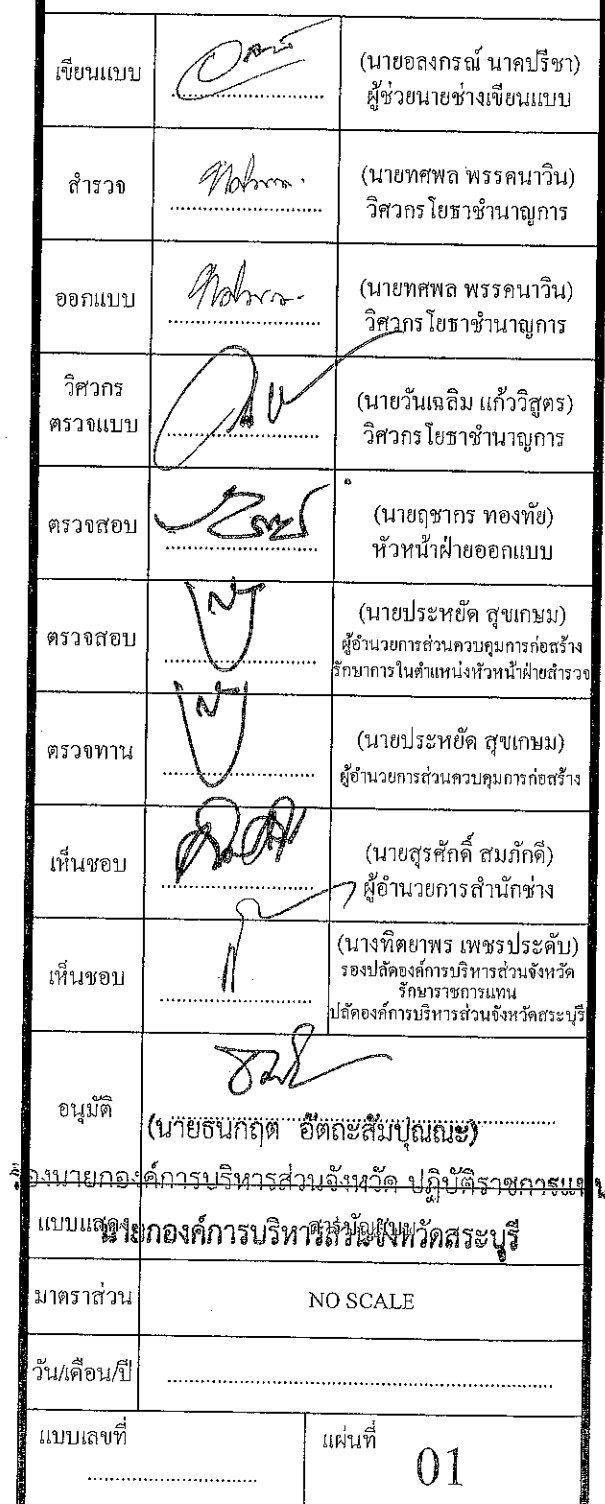 เขียนแบบ
(นายอลงกรณ์ นาคปรีชา)
ผู้ช่วยนายช่างเขียนแบบ
สำรวจ
(นายทศพล พรรคนาวิน)
วิศวกรโยธาชำนาญการ
ออกแบบ
(นายทศพล พรรคนาวิน)
วิศวกรโยธาชำนาญการ
วิศวกร
ตรวจแบบ
(นายวันเฉลิม แก้ววิสูตร)
วิศวกรโยธาชำนาญการ
ตรวจสอบ
(นายฤชากร ทองทัย)
หัวหน้าฝ่ายออกแบบ
ตรวจสอบ
(นายประหยัด สุขเกษม)
ผู้อำนวยการส่วนควบคุมการก่อสร้าง
รักษาการในตำแหน่งหัวหน้าฝ่ายสำรวจ
ตรวจทาน
(นายประหยัด สุขเกษม)
ผู้อำนวยการส่วนควบคุมการก่อสร้าง
เห็นชอบ
(นายสุรศักดิ์ สมภักดี)
ผู้อำนวยการสำนักช่าง
เห็นชอบ
(นางทิตยาพร เพชรประดับ)
รองปลัดองค์การบริหารส่วนจังหวัด
รักษาราชการแทน
ปลัดองค์การบริหารส่วนจังหวัดสระบุรี
อนุมัติ
(นายธนกฤต อัตถะสัมปุณณะ)
รองนายกองค์การบริหารส่วนจังหวัด ปฏิบัติราชการแทน
นายกองค์การบริหารส่วนจังหวัดสระบุรี
แบบแสดง
สารบัญแบบ
มาตราส่วน
NO SCALE
วัน/เดือน/ปี
แบบเลขที่
แผ่นที่
01